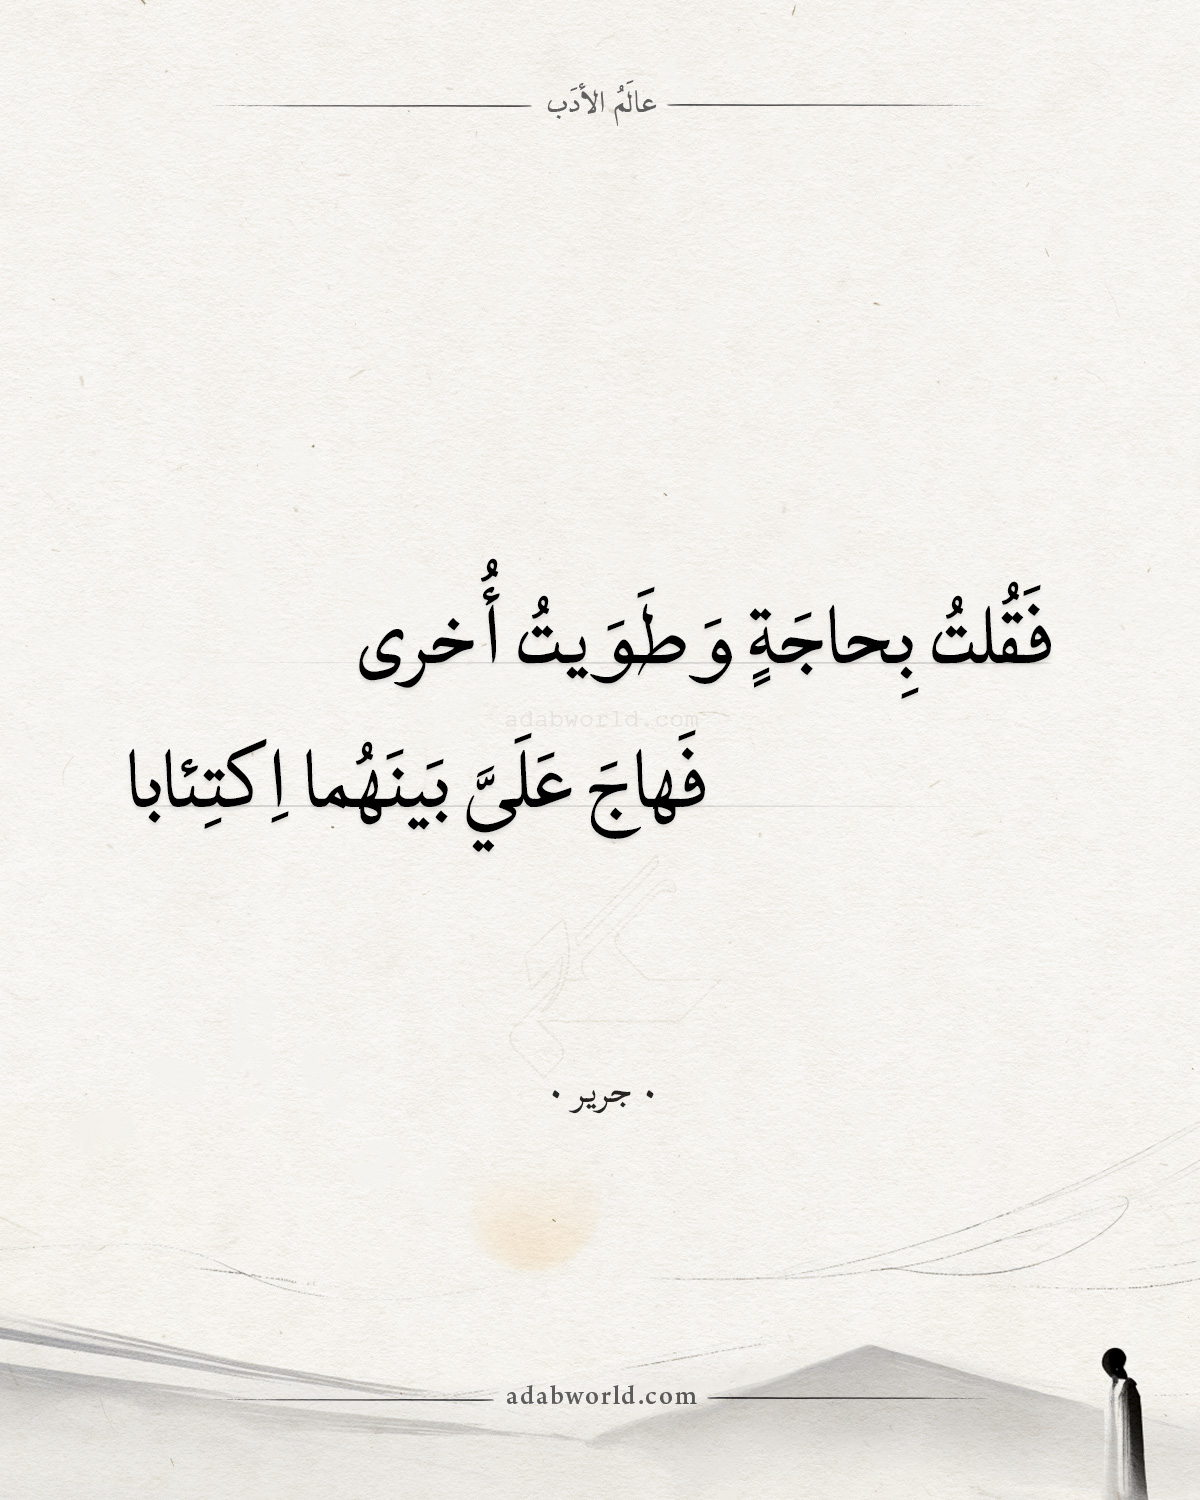 عالَمُ الأدَب
فَقُلتُ بِحاجَةٍ وَطَوَيتُ أُخرى
adabworld.com
فَهاجَ عَلَيَّ بَينَهُما اِكتِئابا
• جرير •
adabworld.com